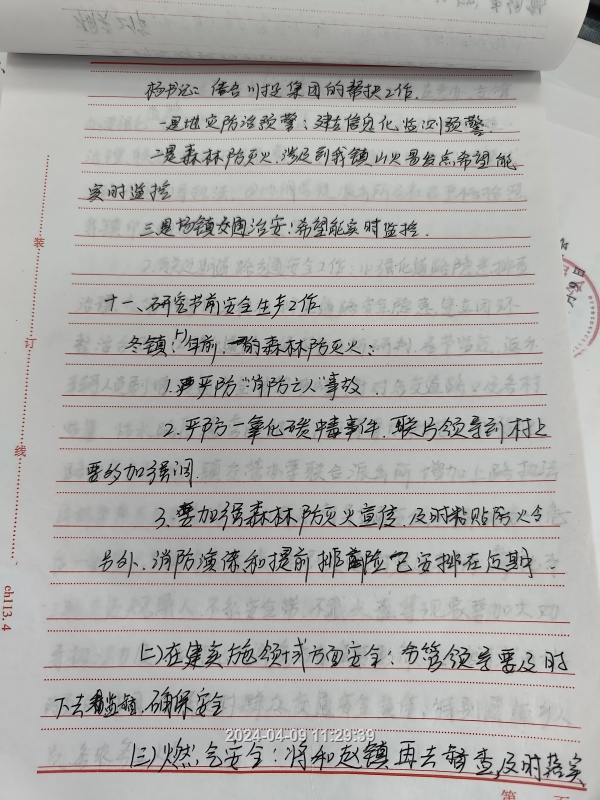 杨书记：结合川投集团的帮扶工作.
一是地灾防治预警：建立信息化，监测预警.
二是森林防灭火，涉及到我镇山火易发点希望能
实时监控
三是场镇交通治安：希望能实时监控.
十一、研究节前安全生产工作
冬镇：(一)年前，的森林防灭火：
1.严平防“消防亡人”事故.
2.严防一氧化碳中毒事件，联片领导到村上
要多加强调.
3.要加强森林防灭火宣传，及时粘贴防火令
另外，消防演练和提前排险已安排在近期.
(二)在建实施领域方面安全：分管领导要及时
下去监督，确保安全
(三)燃气安全：将和赵镇再去督查，及时落实
装
订
线
ch113.4
2024-04-09 11:29:39